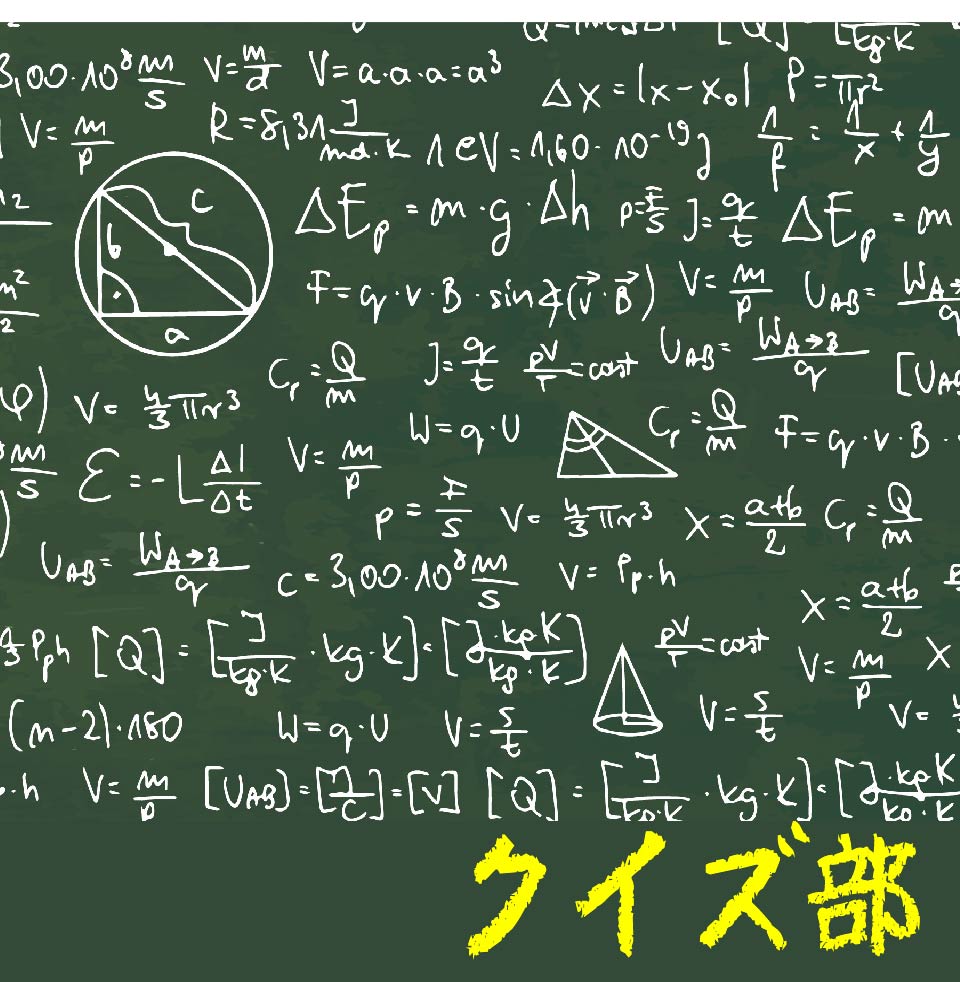 3,00·10⁸ m/s V=m/d V=a·a·a=a³
Δx=|x-x₀| P=πr²
V=m/p R=8,31 J/mol·K 1eV=1,60·10⁻¹⁹J 1/f=1/x+1/y
c
b
a
ΔEp=m·g·Δh p=F/s J=q/t ΔEp=m
F=q·v·B·sin∡(v⃗·B⃗) V=m/p U_AB=W_A→B/q
Cr=Q/m J=q/t pV/T=cost U_AB=W_A→B/q [U_AB
φ) V=4/3πr³ W=q·U Cr=Q/m F=q·v·B
m/s ε=-L ΔI/Δt V=m/p
p=F/s V=4/3πr³ X=a+b/2 Cr=Q/m
U_AB=W_A→B/q c=3,00·10⁸ m/s V=Pp·h X=a+b/2
Pp h [Q]=[J/kg·K·kg·K]=[J·kg K/kg·K] pV/T=cost V=m/p X
(n-2)·180 W=q·U V=s/t V=s/t V=
·h V=m/p [U_AB]=[J/C]=[V] [Q]=[J/kg·K·kg·K]=[J·kg K/kg·K
クイズ部